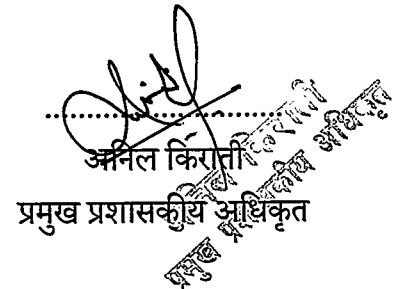 अनिल किराती
प्रमुख प्रशासकीय अधिकृत
अनिल किराती
प्रमुख प्रशासकीय अधिकृत